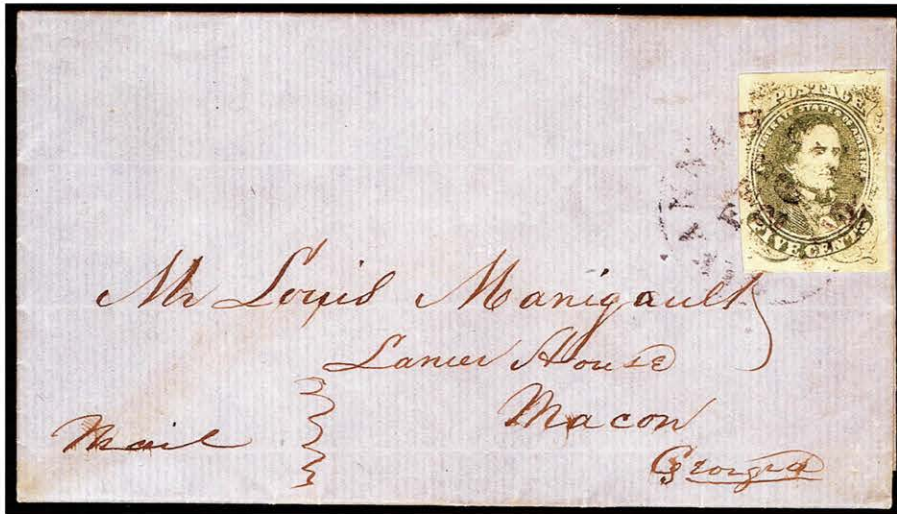 POSTAGE
CONFEDERATE STATES OF AMERICA
FIVE CENTS
Mr Louis Manigault
Lanier House
Macon
Mail
Georgia